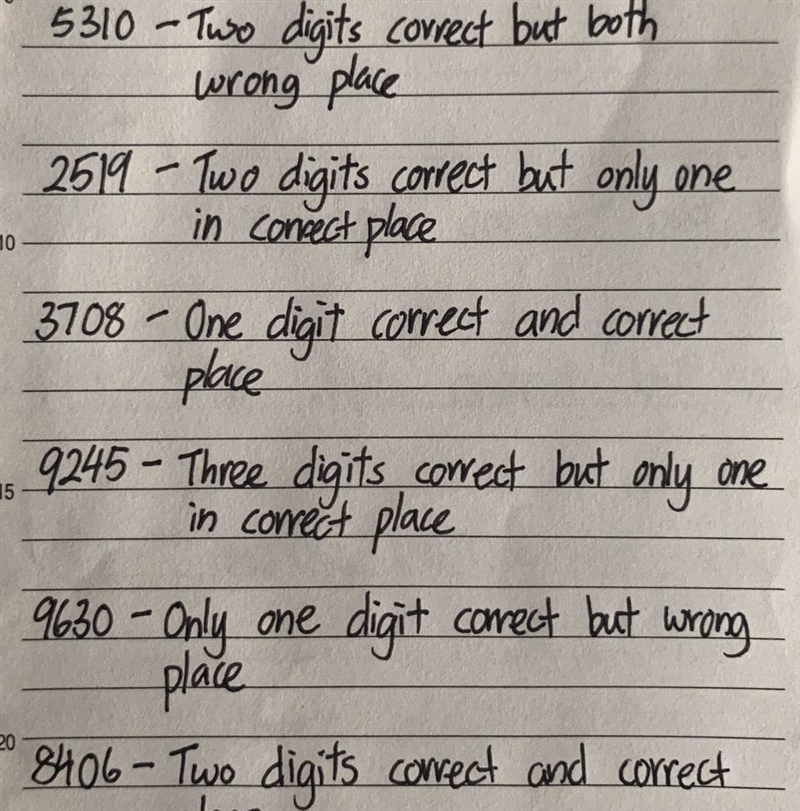 5310 - Two digits correct but both
wrong place
2519 - Two digits correct but only one
10
in correct place
3708 - One digit correct and correct
place
9245 - Three digits correct but only one
15
in correct place
9630 - Only one digit correct but wrong
place
20
8406 - Two digits correct and correct